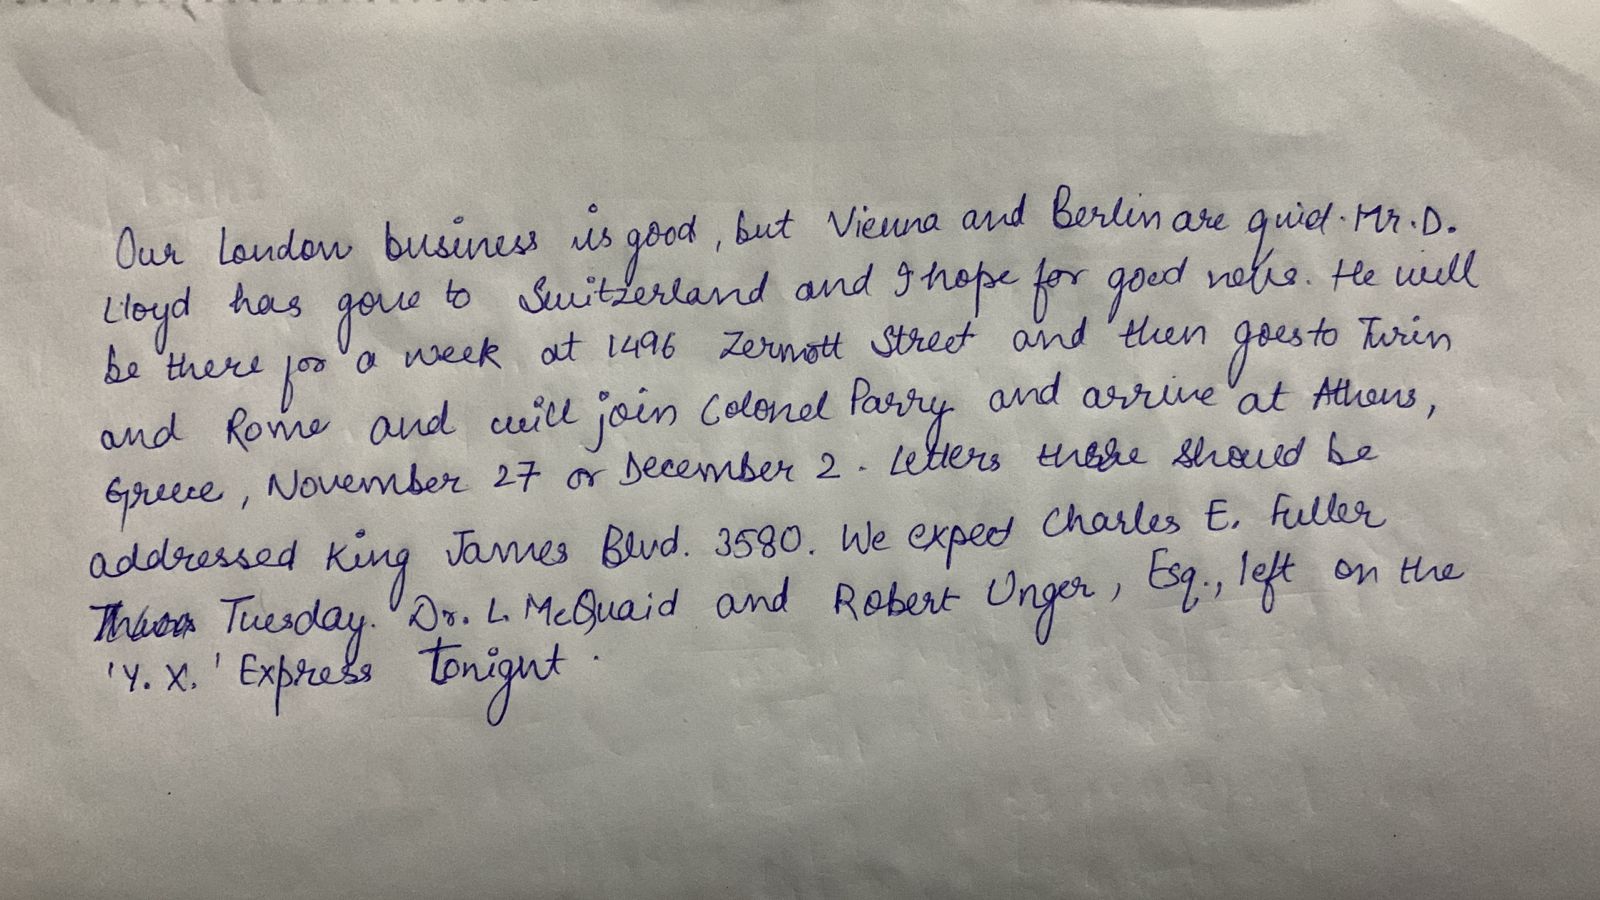 Our London business is good, but Vienna and Berlin are quiet. Mr. D.
Lloyd has gone to Switzerland and I hope for good news. He will
be there for a week at 1496 Zermott Street and then goes to Turin
and Rome and will join Colonel Parry and arrive at Athens,
Greece, November 27 or December 2. Letters there should be
addressed King James Blvd. 3580. We expect Charles E. Fuller
Tuesday. Dr. L. McQuaid and Robert Unger, Esq., left on the
'Y. X.' Express Tonight.